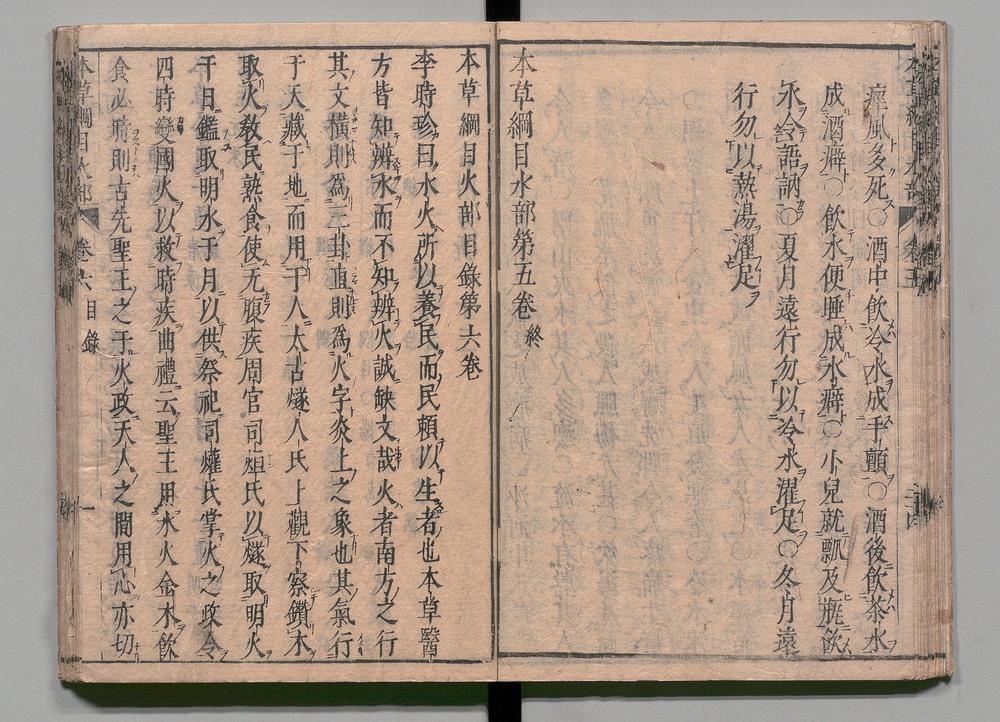 痙風多死○酒中飲冷水成手顫○酒後飲茶水
成酒癖○飲水便睡成水癖○小兒就瓢及瓶飲
水令語訥○夏月遠行勿以冷水濯足○冬月遠
行勿以熱湯濯足
本草綱目水部第五卷終
本草綱目火部目錄第六卷
李時珍曰水火所以養民而民賴以生者也本草醫
方皆知辨水而不知辨火誠缺文哉火者南方之行
其文橫則爲三卦直則爲火字炎上之象也其氣行
于天藏于地而用于人太古燧人氏上觀下察鑽木
取火敎民熟食使无腹疾周官司烜氏以燧取明火
于日鑑取明水于月以供祭祀司爟氏掌火之政令
四時變國火以救時疾曲禮云聖王用水火金木飲
食必時則古先聖王之于火政天人之間用心亦切
本草綱目火部 卷六 目錄 一